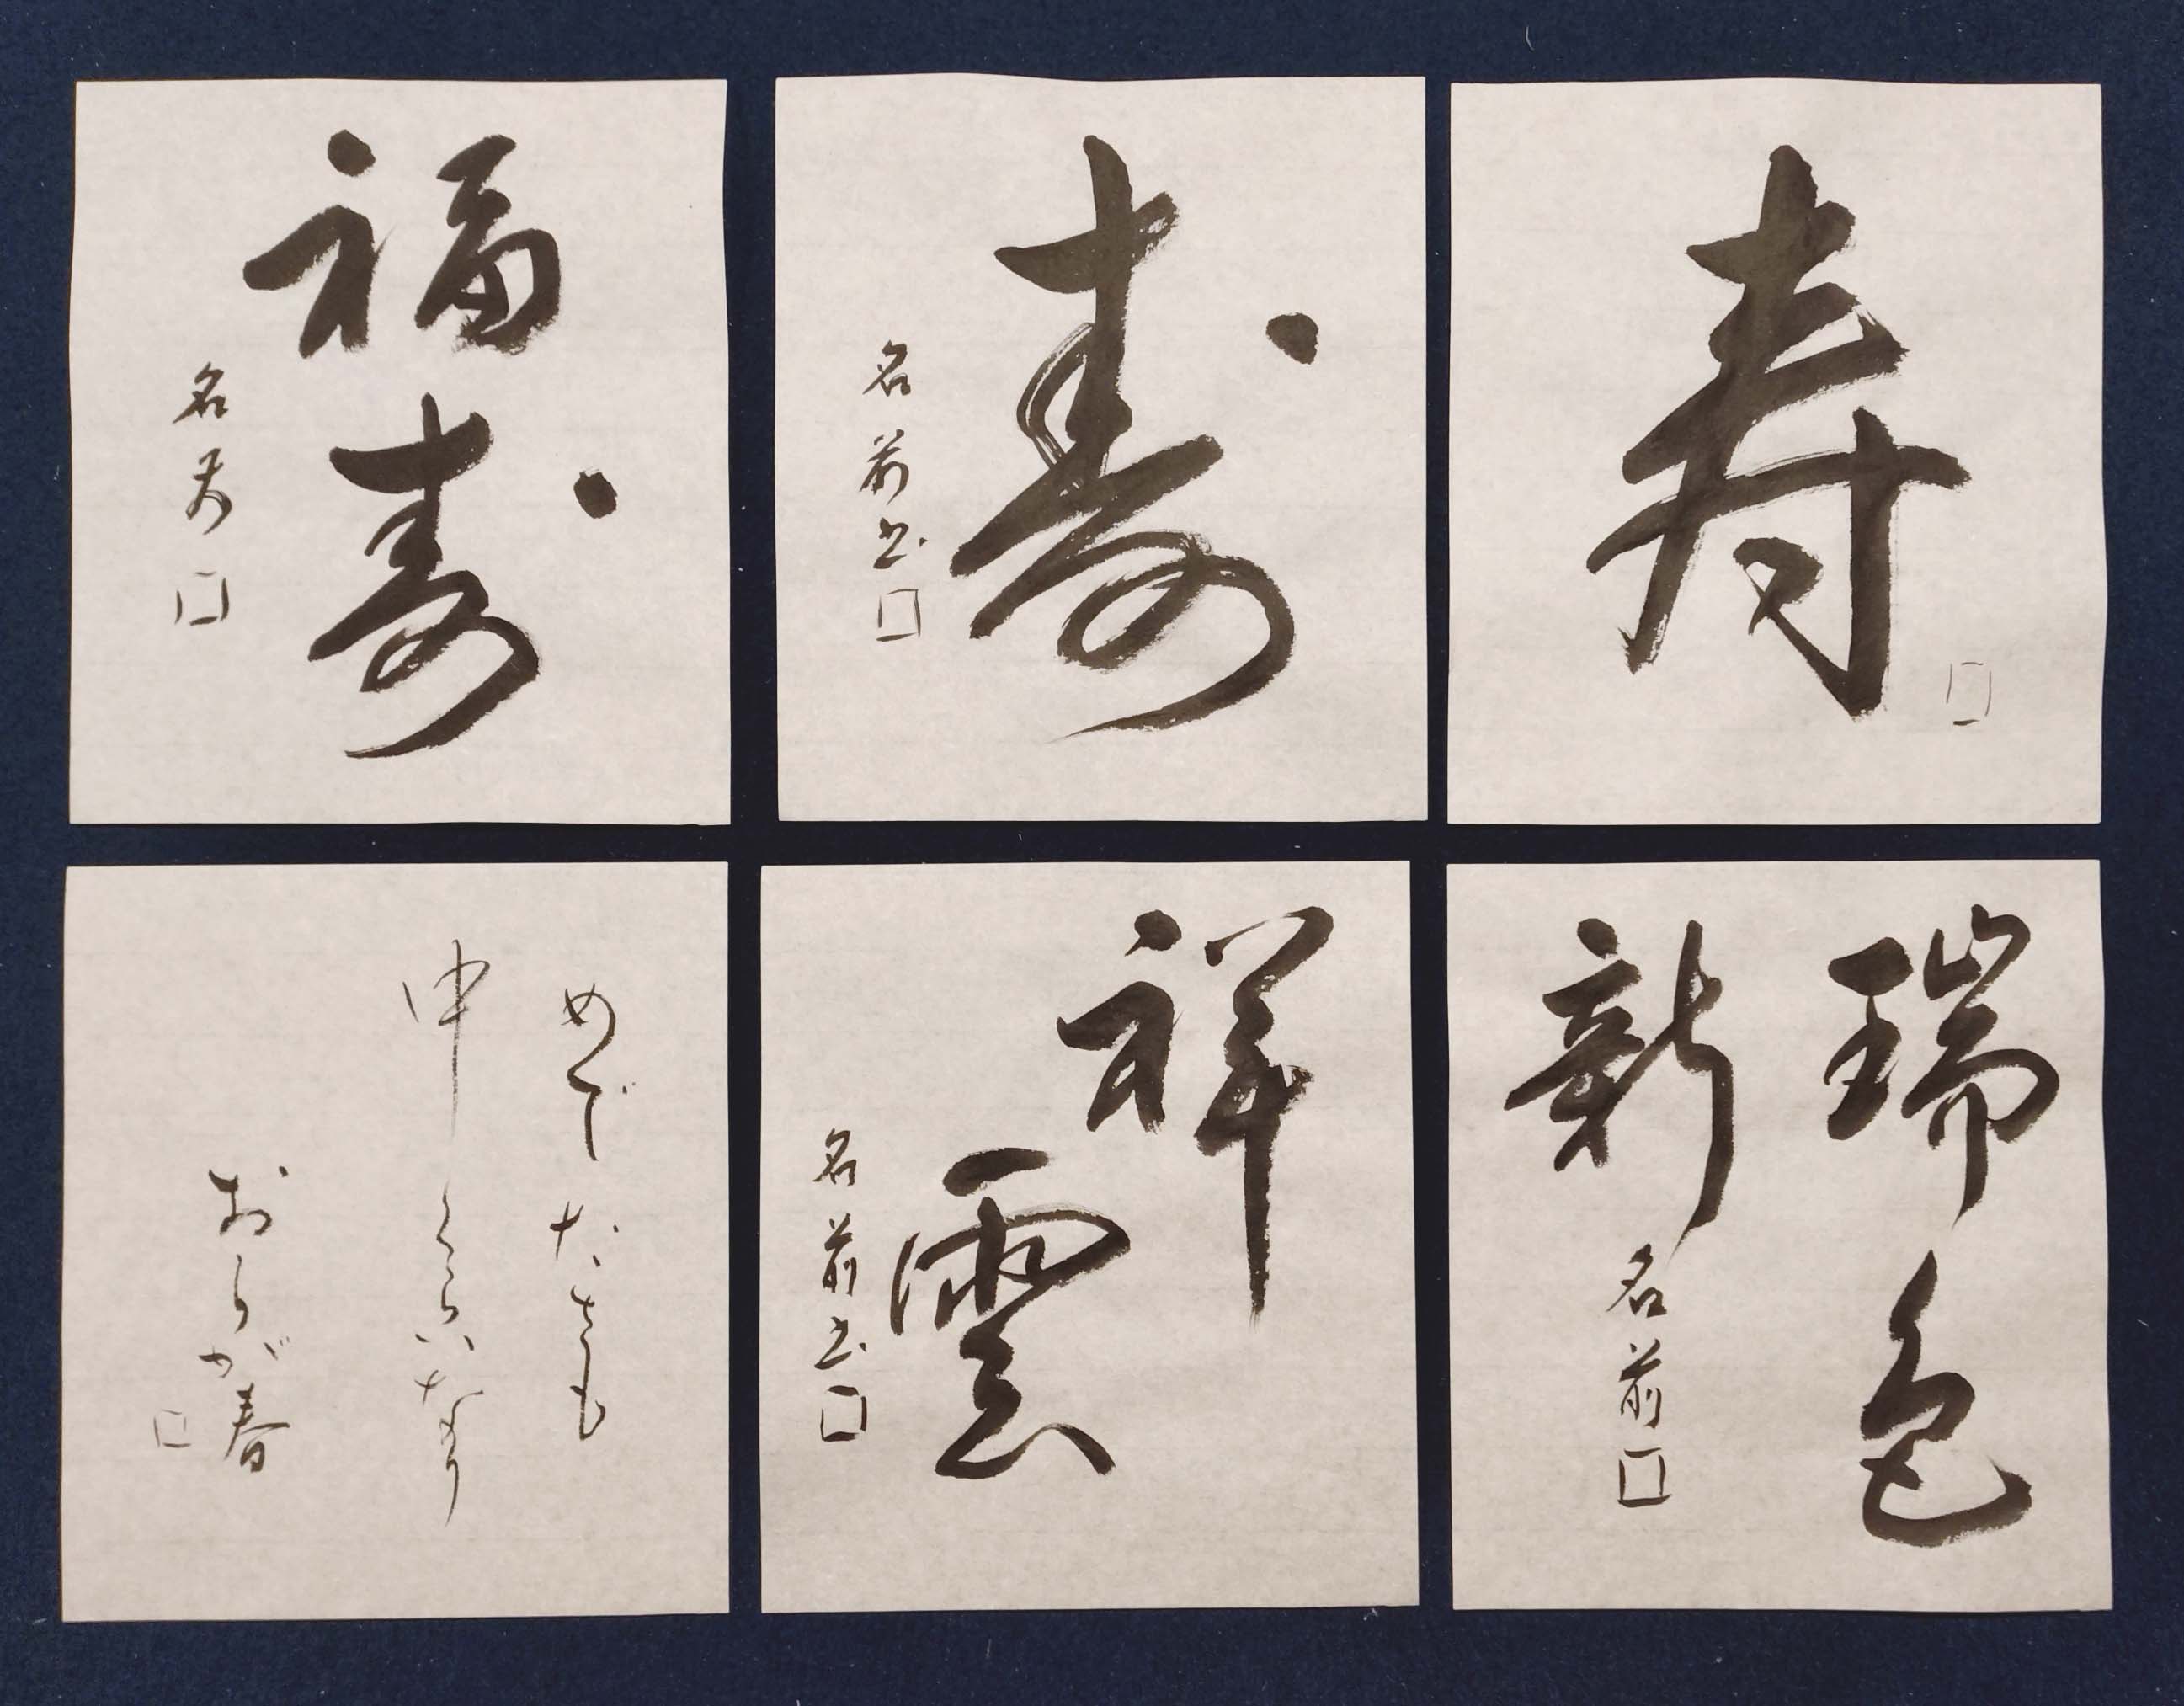 寿
寿
名前書
福
寿
名前
瑞色
新
名前
祥
雲
名前書
めでたさも
中くらいなり
おらが春